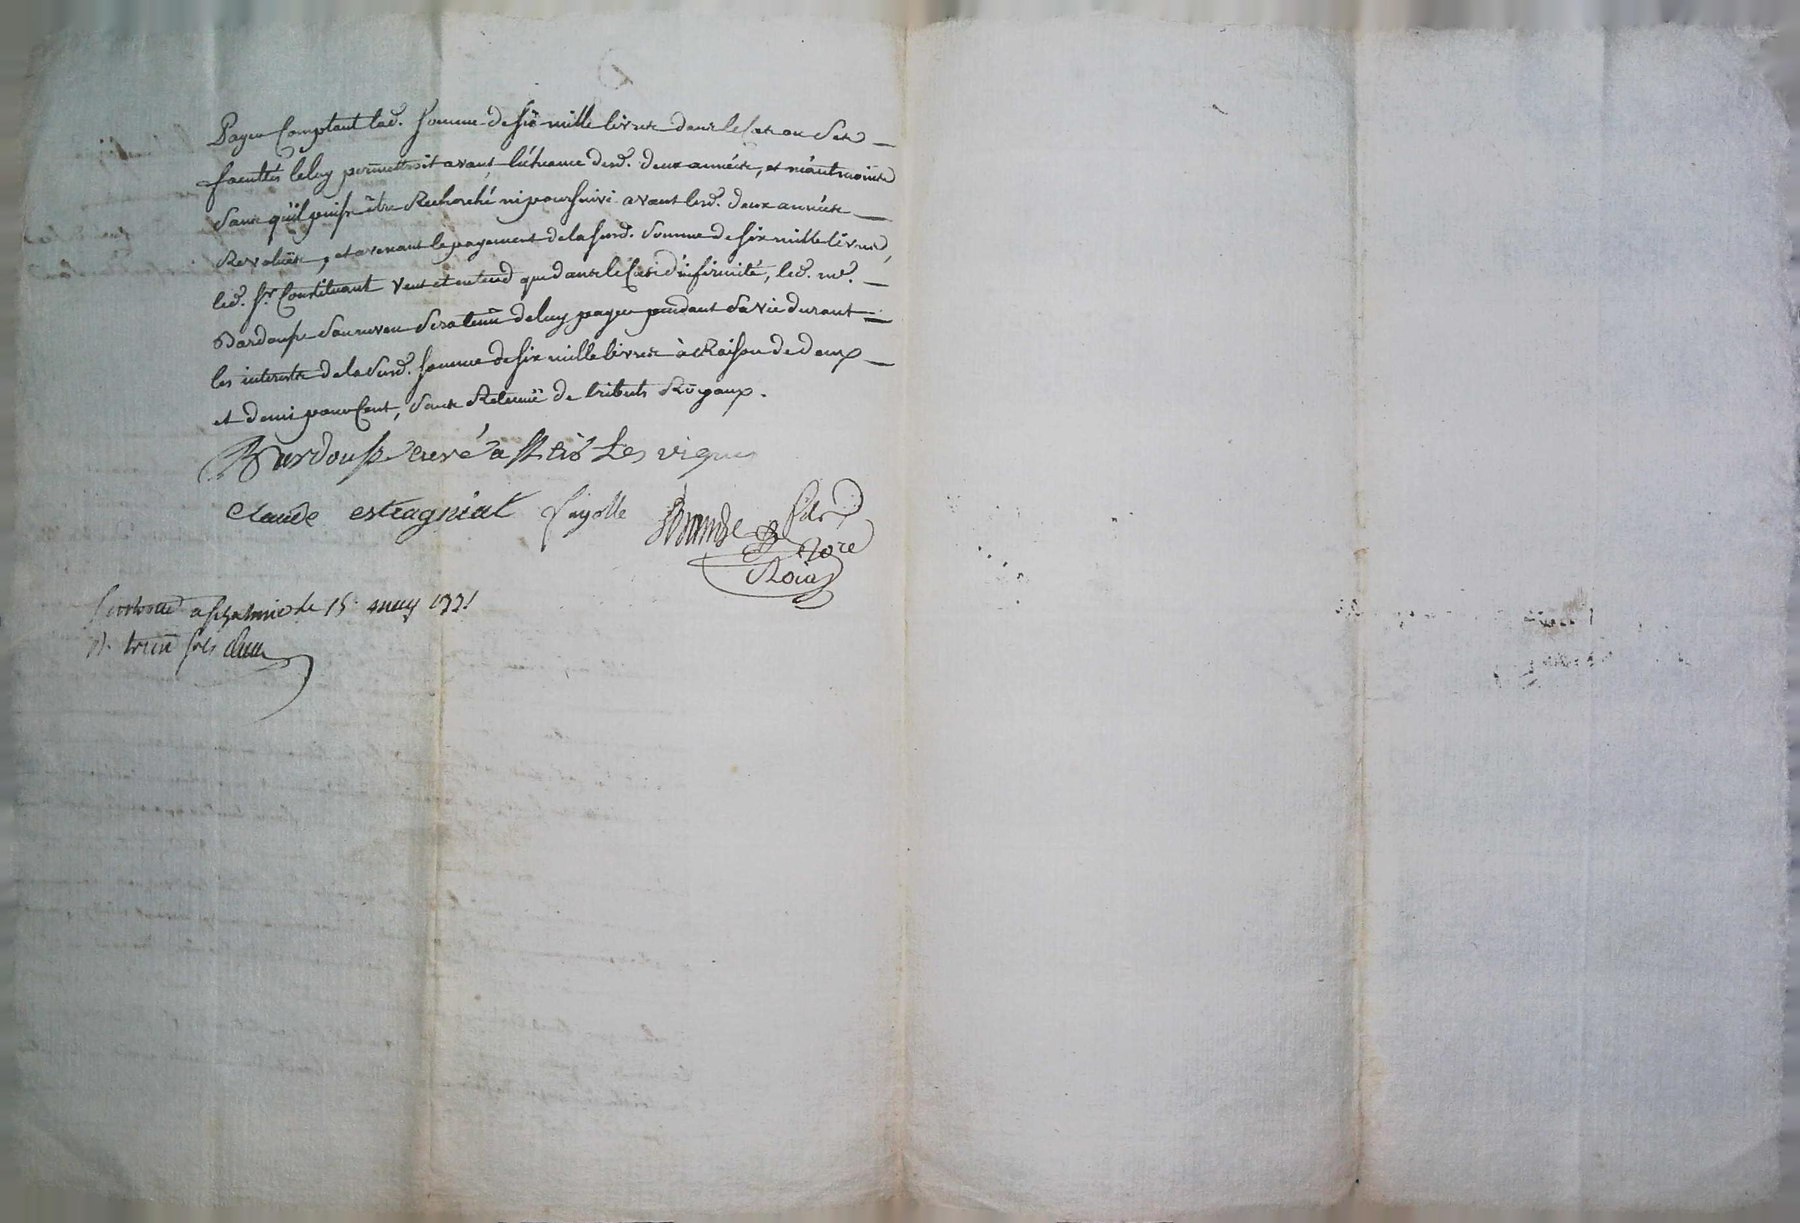 Payer Comptant lad. Somme de six mille livres dans le Cas ou ses
facultés le luy permettroit avant l'échéance desd. deux années, et néantmoins
sans quïl puisse être Recherché ni poursuivi avant lesd. deux années
Revolües, et avenant le payement de la susd. Somme de six mille livres,
led. Sr. Constituant veut et entend que dans le Cas d'infirmité, led. mr.
Bardouse son neveu Sera tenü de luy payer pendant Sa vie durant
les interests de la Susd. Somme de six mille livres à Raison de deux
et demi pour Cent, Sans Retenüe de tributs Royaux.
Bardouse curé à les vignes
Claude estragniat fayolle
Nore
Roial
15 may
R. sols